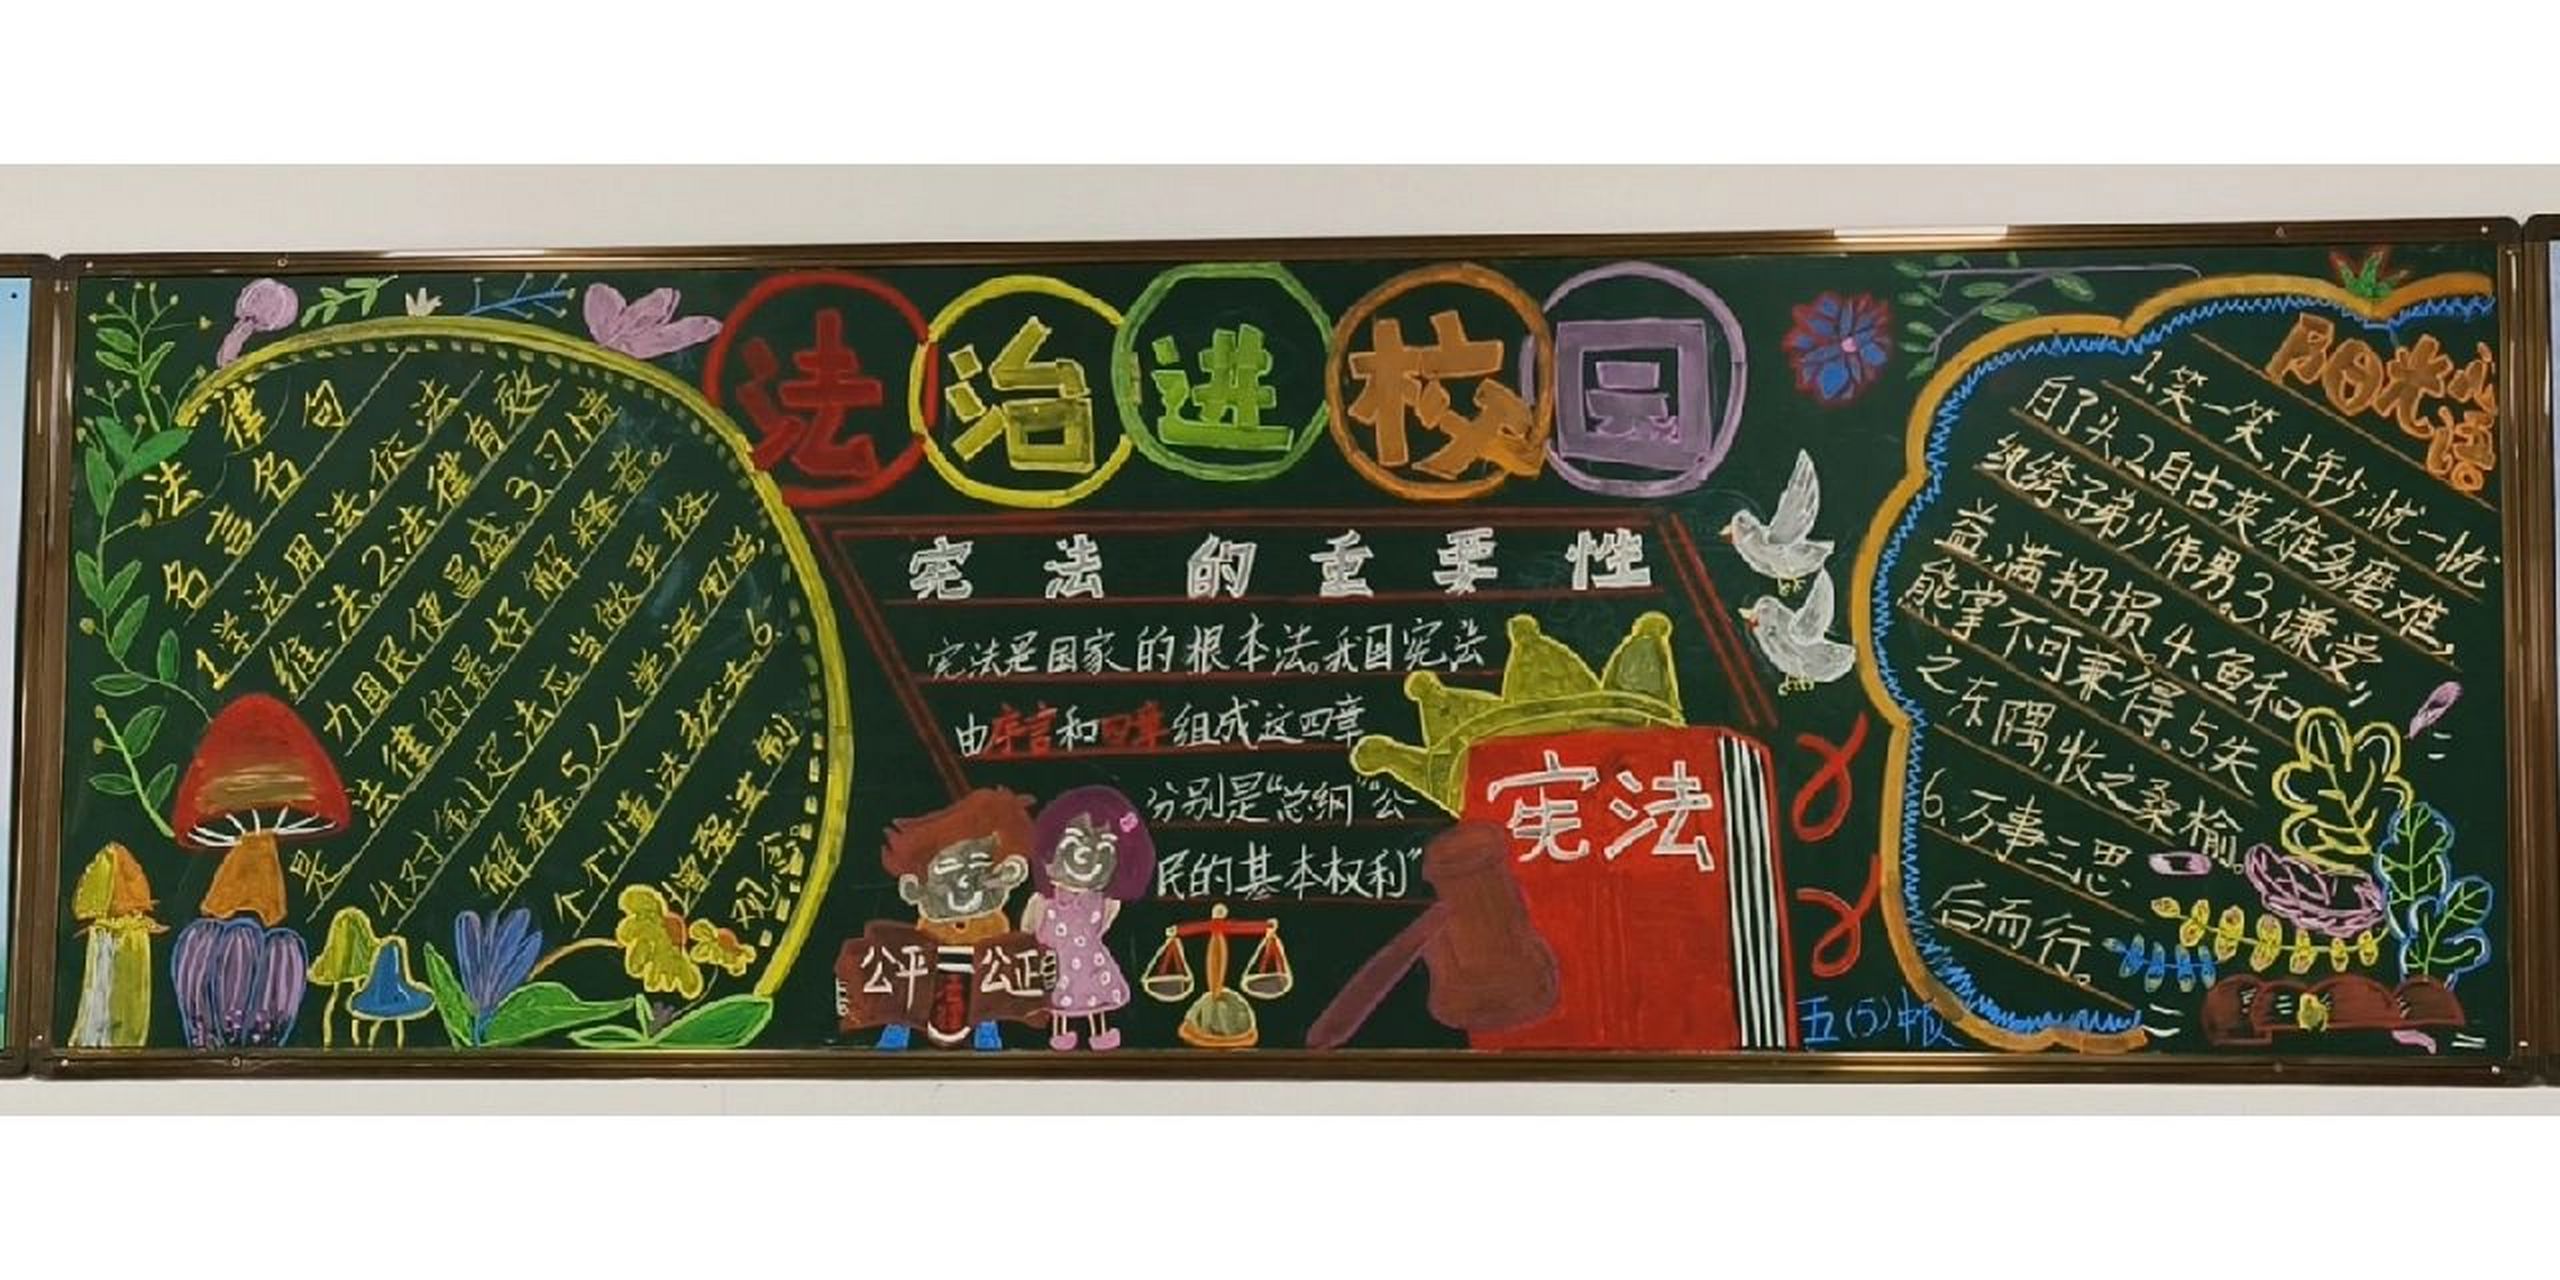 法治进校园
法律
名言名句
1.学法用法,依法
维法。2.法律有效
力国民便昌盛。3.习惯
是法律的最好解释者。
4.对制定法应当做严格
解释。5.人人学法用法,
个个懂法护法。6.
增强法制
观念。
宪法的重要性
宪法是国家的根本法。我国宪法
由序言和四章组成这四章
分别是“总纲”“公
民的基本权利”
宪法
公平
公正
五(5)中队
阳光心语
1.笑一笑,十年少,忧一忧
白了头。2.自古英雄多磨难,
纨绔子弟少伟男。3.谦受
益,满招损。4.鱼和
熊掌不可兼得。5.失
之东隅,收之桑榆。
6.万事三思
后而行。